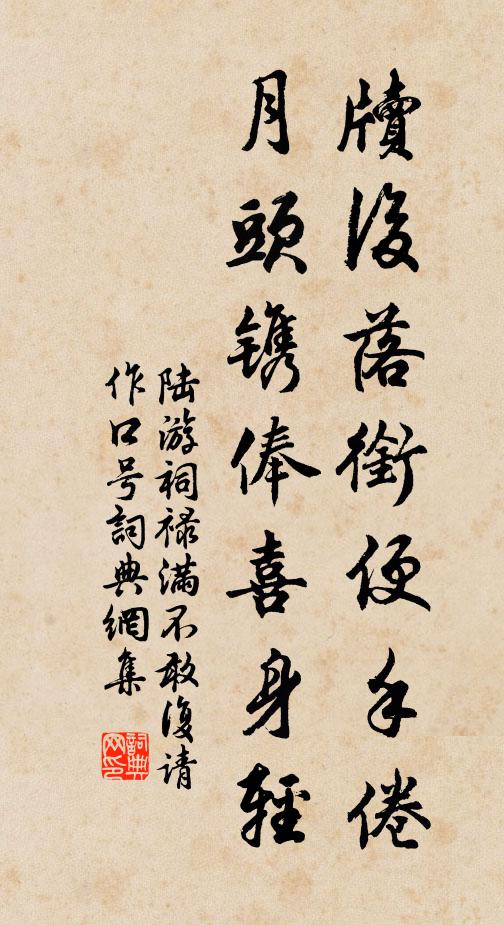 牘後落銜便手倦
月頭鐫俸喜身輕
陆游祠禄滿不敢復请
作口号詞典網集
詞典網印